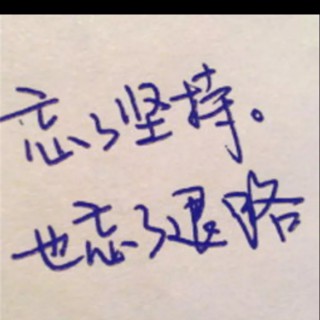 忘了坚持。
也忘了退路